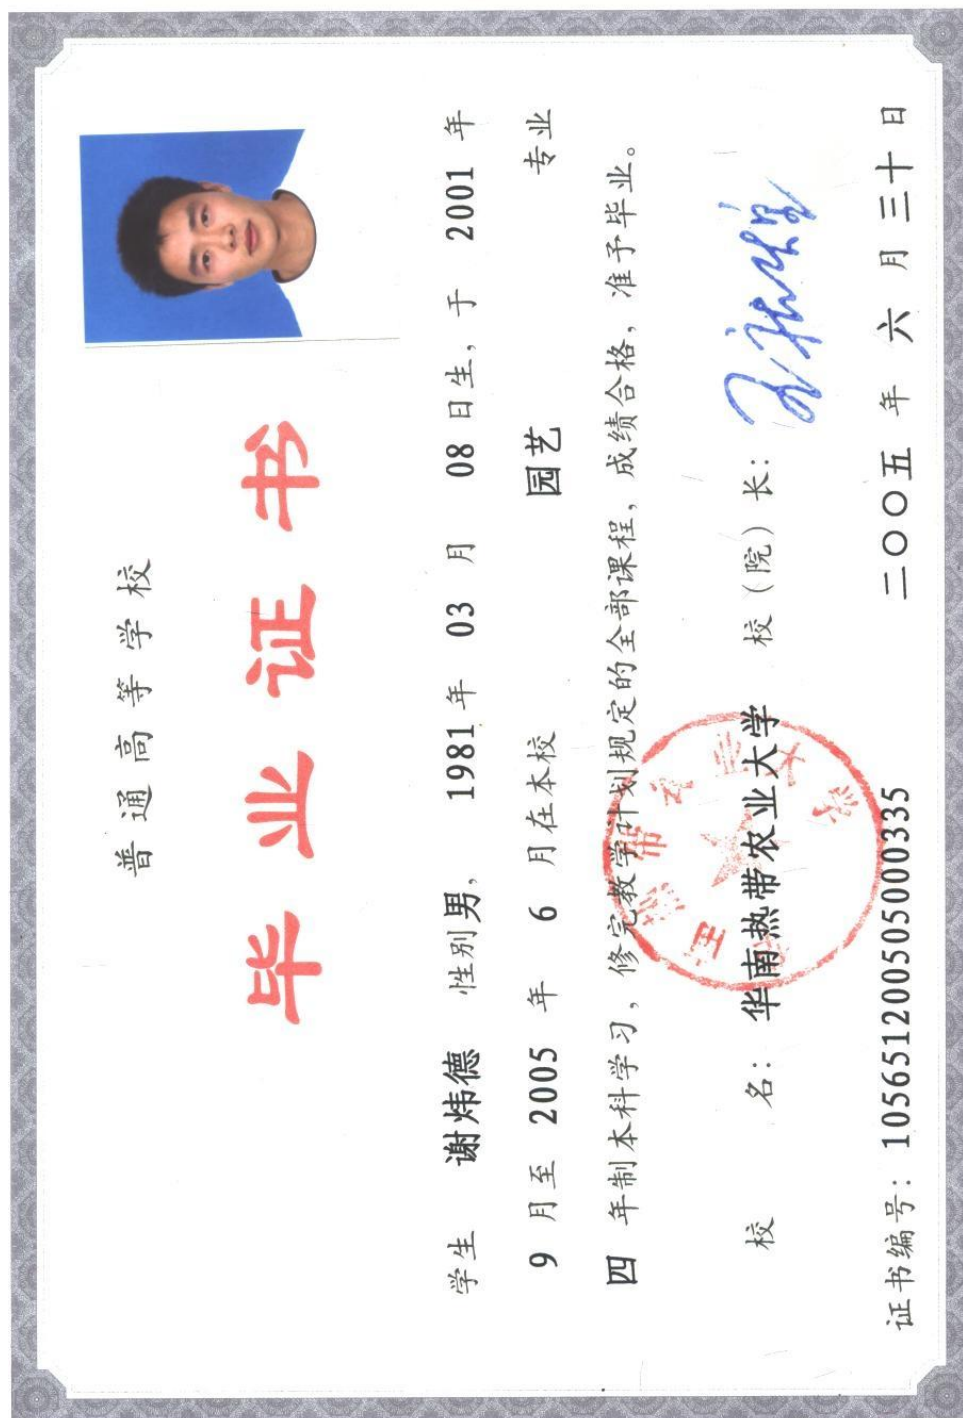 普通高等学校
毕业证书
学生 谢炜德 性别男， 1981年 03 月 08 日生，于 2001 年
9 月至 2005 年 6 月在本校 园艺 专业
四 年制本科学习，修完教学计划规定的全部课程，成绩合格，准予毕业。
校 名：华南热带农业大学 校（院）长：
证书编号：105651200505000335 二〇〇五 年 六 月 三十 日